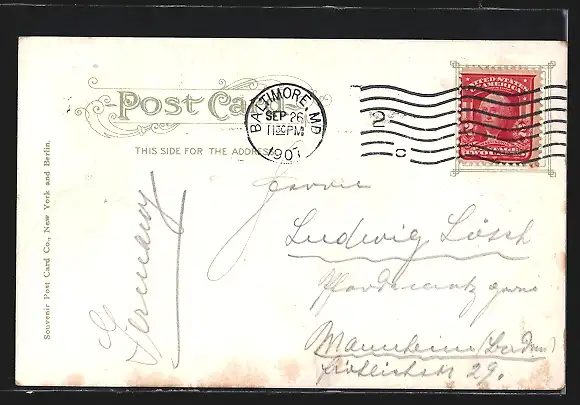 Post Card
THIS SIDE FOR THE ADDRESS
BALTIMORE, MD
SEP 26
1130PM
1907
2
C
UNITED STATES
OF AMERICA
Souvenir Post Card Co., New York and Berlin.
Germany
Herrn
Ludwig Lösch
Mannheim (Baden)
29.